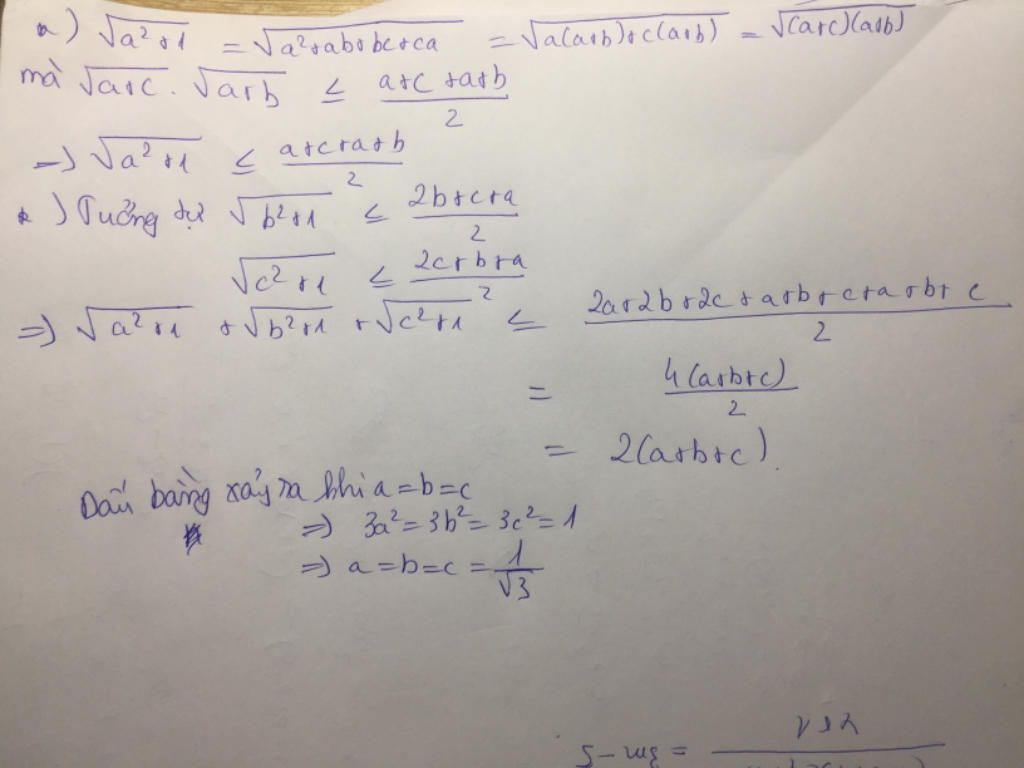 *) √(a²+1) = √(a²+ab+bc+ca) = √(a(a+b)+c(a+b)) = √((a+c)(a+b))
mà √(a+c) . √(a+b) ≤ (a+c+a+b)/2
→) √(a²+1) ≤ (a+c+a+b)/2
*) Tưởng tự √(b²+1) ≤ (2b+c+a)/2
√(c²+1) ≤ (2c+b+a)/2
=) √(a²+1) + √(b²+1) + √(c²+1) ≤ (2a+2b+2c+a+b+c+a+b+c)/2
= 4(a+b+c)/2
= 2(a+b+c).
Dấu bằng xảy ra khi a=b=c
=) 3a²=3b²=3c²=1
=) a=b=c=1/√3